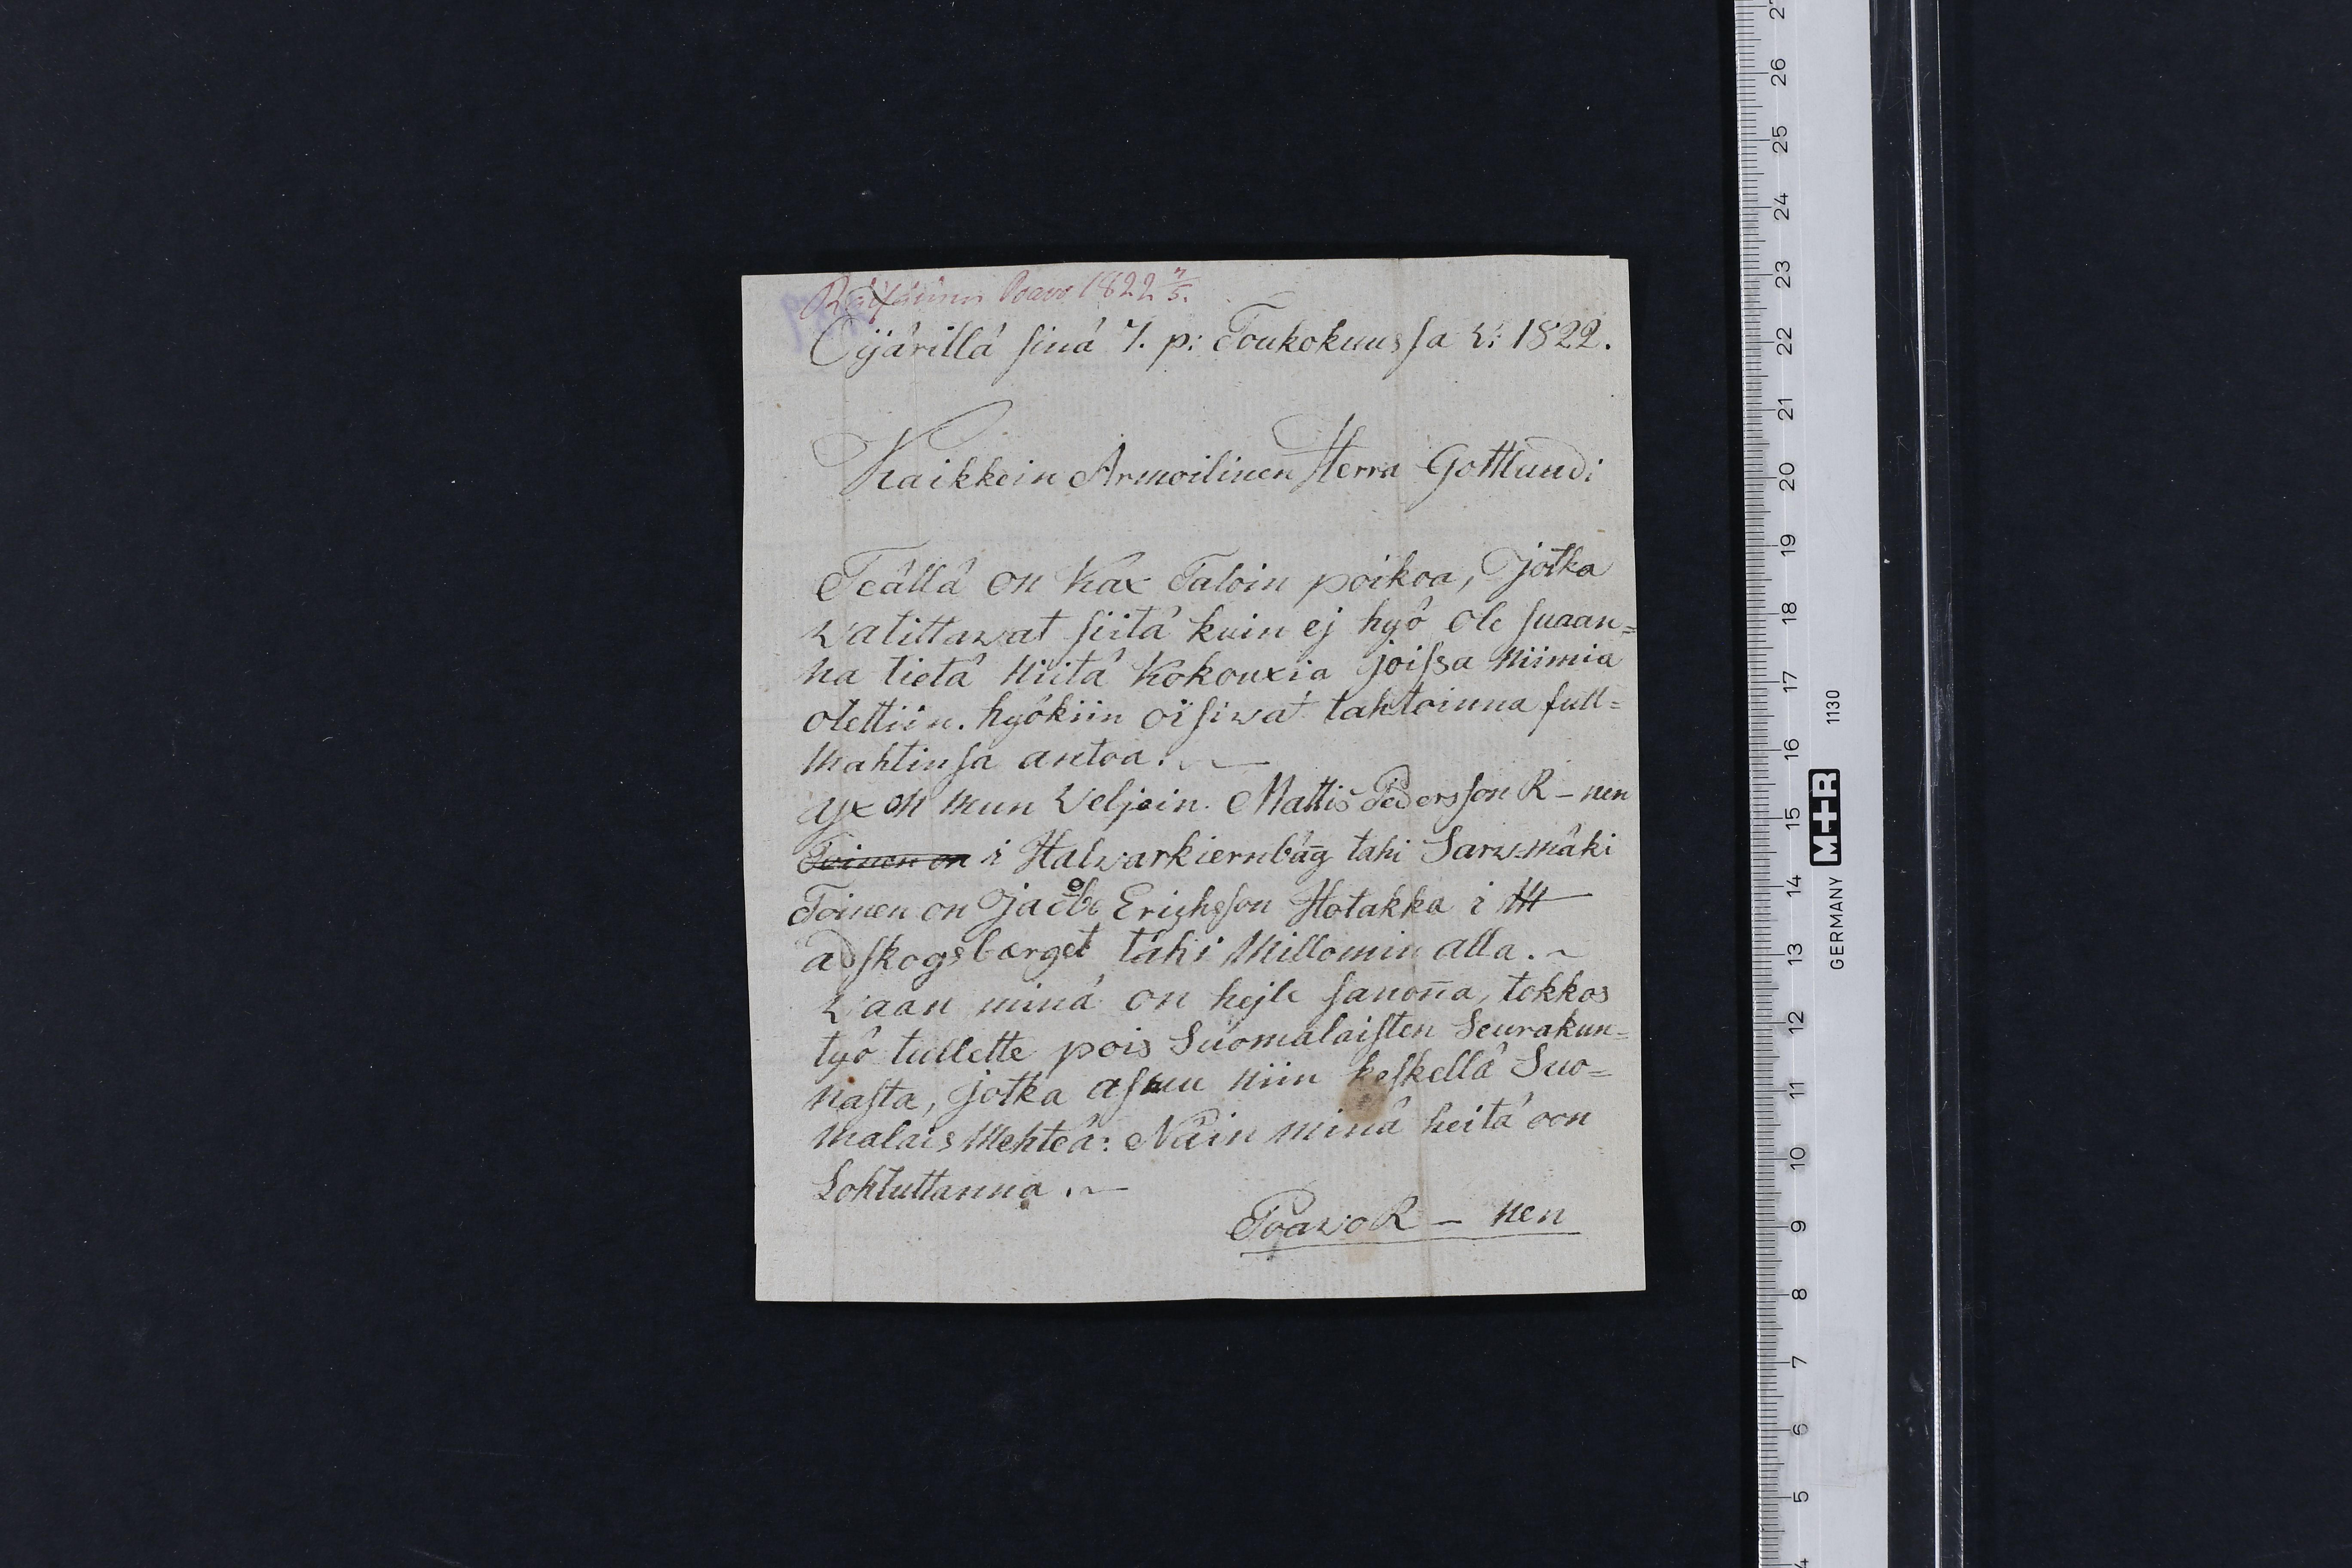 Räisäinen Poavo 1822 7/5.
Öijärillä sinä 7. p: Toukokuussa v: 1822.
Kaikkein Armoilinen Herra Gottlundi
Teällä on kax Taloin poikoa, jotka
valittawat siitä kuin ej hyö ole suaan=
na tietä niitä kokouxia joissa niimia
otettiin. hyökiin oisiwat tahtoinna full=
mahtinsa antoa. —
yx on mun Veljein. Mattis Pedersson R – nen
Toinen on i Halvarkiernbäg tahi Sarwmäki
Toinen on Jacob Erichsson Hotakka i M
adskogsberget tahi Millomin alla. ~
Vaan minä on hejle sanon̄a, tokkos
työ tullette pois Suomalaisten Seurakun=
nasta, jotka asuu niin keskellä Suo=
malais Mehteä: Näin minä heitä oon
Lohtuttanna. —
Poavo R – nen
GERMANY M+R 1130
27
26
25
24
23
22
21
20
19
18
17
16
15
14
13
12
11
10
9
8
7
6
5
4